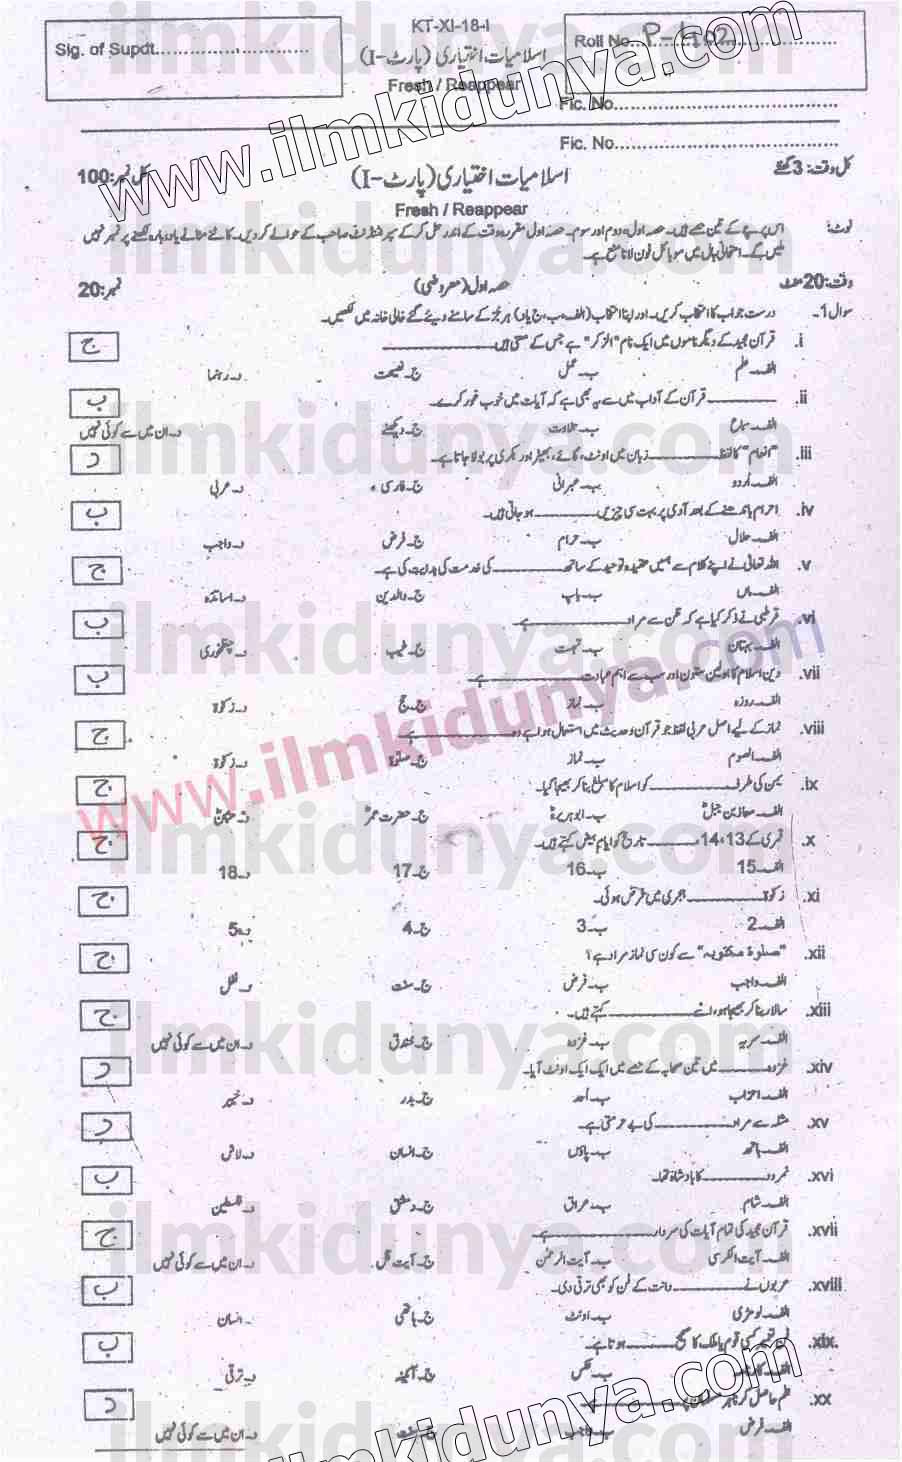 KT-XI-18-I
Sig. of Supdt.
اسلامیات اختیاری (پارٹ-I)
Fresh / Reappear
Roll No. P-
Fic. No.
Fic. No.
کل وقت: 3 گھنٹے اسلامیات اختیاری (پارٹ-I) کل نمبر: 100
Fresh / Reappear
نوٹ: اس پرچے کے تین حصے ہیں۔ حصہ اول، دوم اور سوم۔ حصہ اول مقررہ وقت کے اندر حل کر کے سپرنٹنڈنٹ صاحب کے حوالے کر دیں۔ کاٹنے مٹانے یا دوبارہ لکھنے پر نمبر نہیں
ملیں گے۔ امتحانی ہال میں موبائل فون لانا منع ہے۔
وقت: 20 منٹ حصہ اول (معروضی) نمبر: 20
سوال 1۔ درست جواب کا انتخاب کریں۔ اور اپنا انتخاب (الف، ب، ج یا د) ہر جز کے سامنے دیئے گئے خالی خانہ میں لکھیں۔
i. قرآن مجید کے دیگر ناموں میں ایک نام "الذکر" ہے جس کے معنی ہیں ج
الف۔ علم ب۔ عمل ج۔ نصیحت د۔ رہنما
ii. قرآن کے آداب میں سے یہ بھی ہے کہ آیات میں خوب غور کرے۔ ب
الف۔ سماع ب۔ تلاوت ج۔ دیکھنے د۔ ان میں سے کوئی نہیں
iii. "انعام" کا لفظ زبان میں اونٹ، گائے، بھیڑ اور بکری پر بولا جاتا ہے۔ د
الف۔ اُردو ب۔ عبرانی ج۔ فارسی د۔ عربی
iv. احرام باندھنے کے بعد آدمی پر بہت سی چیزیں ہو جاتی ہیں۔ ب
الف۔ حلال ب۔ حرام ج۔ فرض د۔ واجب
v. اللہ تعالیٰ نے اپنے کلام سے ہمیں عقیدہ توحید کے ساتھ کی خدمت کی ہدایت کی ہے۔ ج
الف۔ ماں ب۔ باپ ج۔ والدین د۔ اساتذہ
vi. قرطبی نے ذکر کیا ہے کہ ظن سے مراد ہے۔ ب
الف۔ بہتان ب۔ تہمت ج۔ غیب د۔ چغلخوری
vii. دین اسلام کا اولین ستون اور سب سے اہم عبادت ہے۔ ب
الف۔ روزہ ب۔ نماز ج۔ حج د۔ زکوٰۃ
viii. نماز کے لیے اصل عربی لفظ جو قرآن و حدیث میں استعمال ہوا ہے وہ ہے۔ ج
الف۔ الصوم ب۔ نماز ج۔ صلوٰۃ د۔ زکوٰۃ
ix. یمن کی طرف کو اسلام کا مبلغ بنا کر بھیجا گیا۔ ج
الف۔ معاذ بن جبلؓ ب۔ ابوہریرہؓ ج۔ حضرت عمرؓ د۔
x. قمری کے 13، 14، تاریخ کو ایام بیض کہتے ہیں۔ ج
الف۔ 15 ب۔ 16 ج۔ 17 د۔ 18
xi. زکوٰۃ ہجری میں فرض ہوئی۔ ج
الف۔ 2 ب۔ 3 ج۔ 4 د۔ 5
xii. "صلوۃ مکتوبہ" سے کون سی نماز مراد ہے؟ ج
الف۔ واجب ب۔ فرض ج۔ سنت د۔ نفل
xiii. سالار بنا کر بھیجا ہو، اسے کہتے ہیں۔ ج
الف۔ سریہ ب۔ غزوہ ج۔ خندق د۔ ان میں سے کوئی نہیں
xiv. غزوہ میں تین صحابہ کے حصے میں ایک ایک اونٹ آیا۔ د
الف۔ احزاب ب۔ احد ج۔ بدر د۔ خیبر
xv. مثلہ سے مراد کی بے حرمتی ہے۔ د
الف۔ ہاتھ ب۔ پاؤں ج۔ انسان د۔ لاش
xvi. نمرود کا بادشاہ تھا۔ ب
الف۔ شام ب۔ عراق ج۔ دمشق د۔ فلسطین
xvii. قرآن مجید کی تمام آیات کی سردار ہے۔ ج
الف۔ آیت الکرسی ب۔ آیت الرحمٰن ج۔ آیت قُل د۔ ان میں سے کوئی نہیں
xviii. عربوں نے دانت کے فن کو بھی ترقی دی۔ ب
الف۔ لومڑی ب۔ اونٹ ج۔ ہاتھی د۔ انسان
xix. فن تعمیر کسی قوم یا ملک کا صحیح ہوتا ہے۔ ب
ب۔ عکس ج۔ آئینہ د۔ ترقی
xx. علم حاصل کرنا ہر مسلمان پر ہے۔ د
الف۔ فرض ب۔ واجب ج۔ سنت د۔ ان میں سے کوئی نہیں
www.ilmkidunya.com
ilmkidunya.com
ilmkidunya.com
ilmkidunya.com
www.ilmkidunya.com
ilmkidunya.com
ilmkidunya.com
ilmkidunya.com
www.ilmkidunya.com
ilmkidunya.com